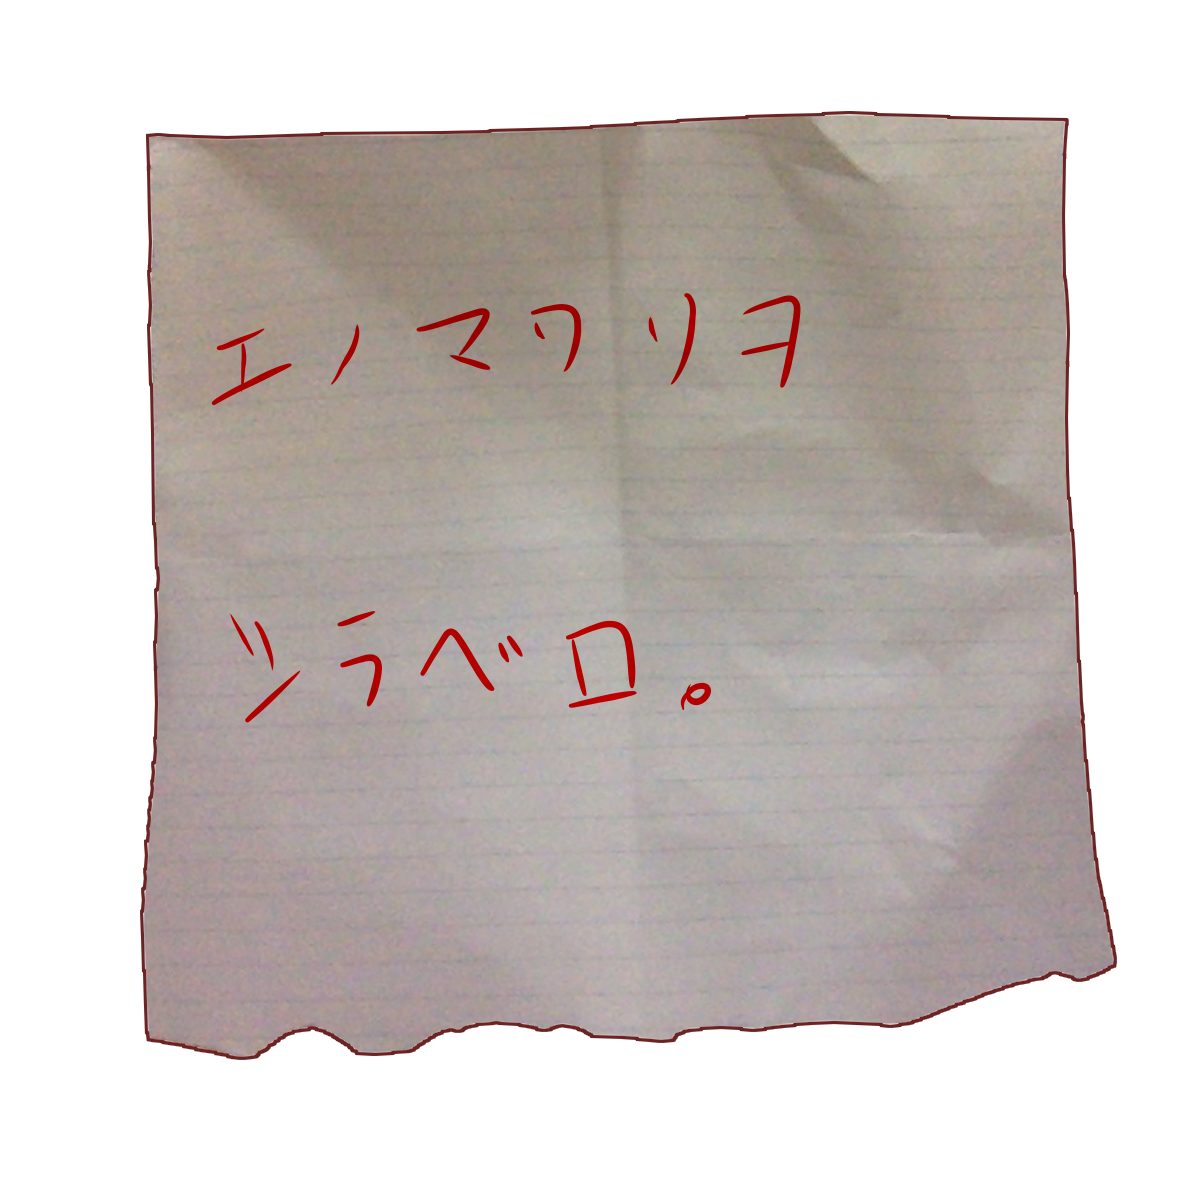 エノマワリヲ
シラベロ。